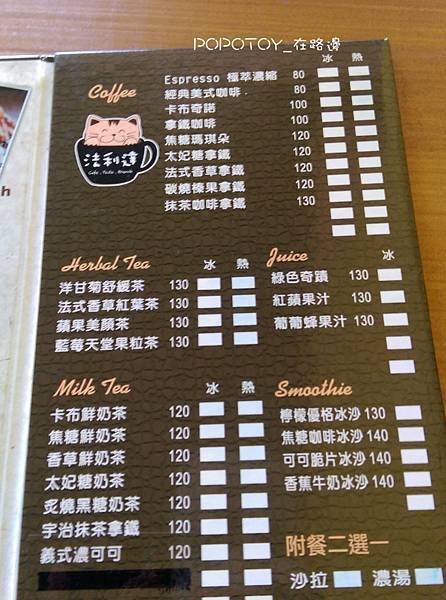 POPOTOY_在路邊
Coffee
冰 熱
Espresso 極萃濃縮 80
經典美式咖啡 80
卡布奇諾 100
拿鐵咖啡 100
焦糖瑪琪朵 120
太妃糖拿鐵 120
法式香草拿鐵 120
碳燒榛果拿鐵 120
抹茶咖啡拿鐵 130
法利蓮
Herbal Tea
冰 熱
洋甘菊舒緩茶 130
法式香草紅葉茶 130
蘋果美顏茶 130
藍莓天堂果粒茶 130
Juice
冰
綠色奇蹟 130
紅蘋果汁 130
葡葡蜂果汁 130
Milk Tea
冰 熱
卡布鮮奶茶 120
焦糖鮮奶茶 120
香草鮮奶茶 120
太妃糖奶茶 120
炙燒黑糖奶茶 120
宇治抹茶拿鐵 120
義式濃可可 120
Smoothie
檸檬優格冰沙 130
焦糖咖啡冰沙 140
可可脆片冰沙 140
香蕉牛奶冰沙 140
附餐二選一
沙拉 濃湯